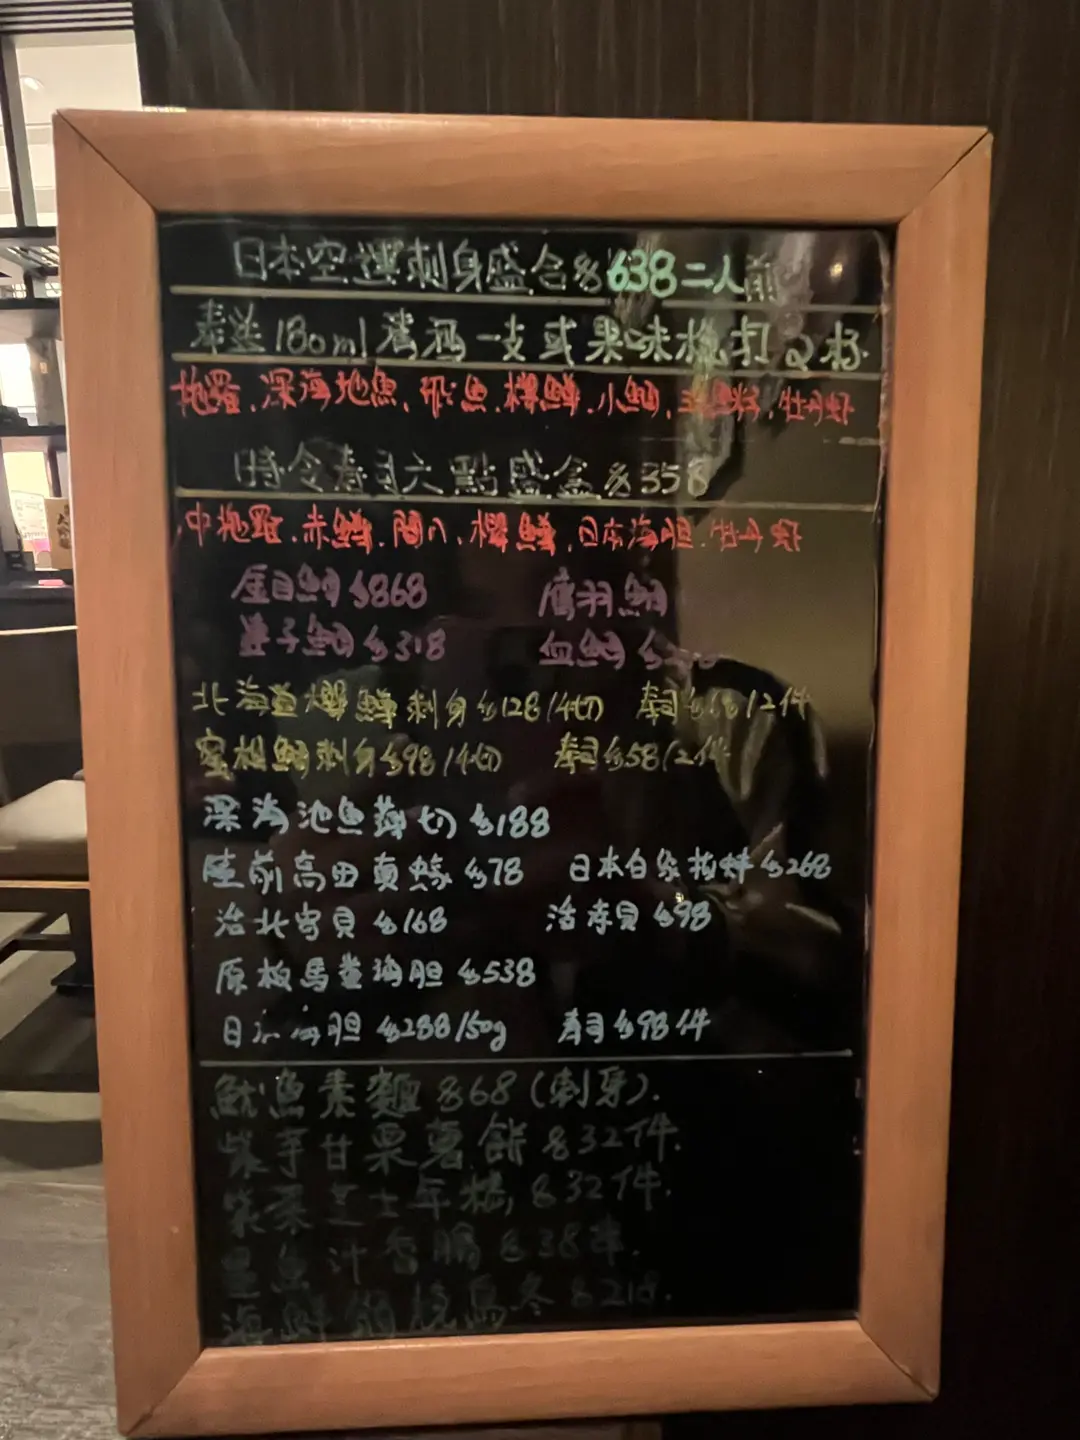 日本空運刺身盛合 $638 二人前
奉送180ml 清酒一支或果味梳打 2杯
拖羅、深海池魚、飛魚、櫻鱒、小鯛、三文魚籽、牡丹蝦
時令壽司六點盛盒 $358
中拖羅、赤鱒、間八、櫻鱒、日本海胆、牡丹蝦
金目鯛 $868 鷹羽鯛
姜子鯛 $318 血鯛
北海道櫻鱒刺身 $128/4切 壽司 /2件
蜜柑鯛刺身 $98/4切 壽司 $58/2件
深海池魚薄切 $188
陸前高田真蠔 $78 日本白 $268
活北寄貝 $168 活赤貝 $98
原板馬糞海胆 $538
日本海胆 $288/50g 壽司 $98件
魷魚素麵 $68 (刺身).
紫芋甘栗薯餅 $32件.
紫菜芝士年糕 $32件.
墨魚汁香腸 $38串.
海鮮鍋燒烏冬 $218.